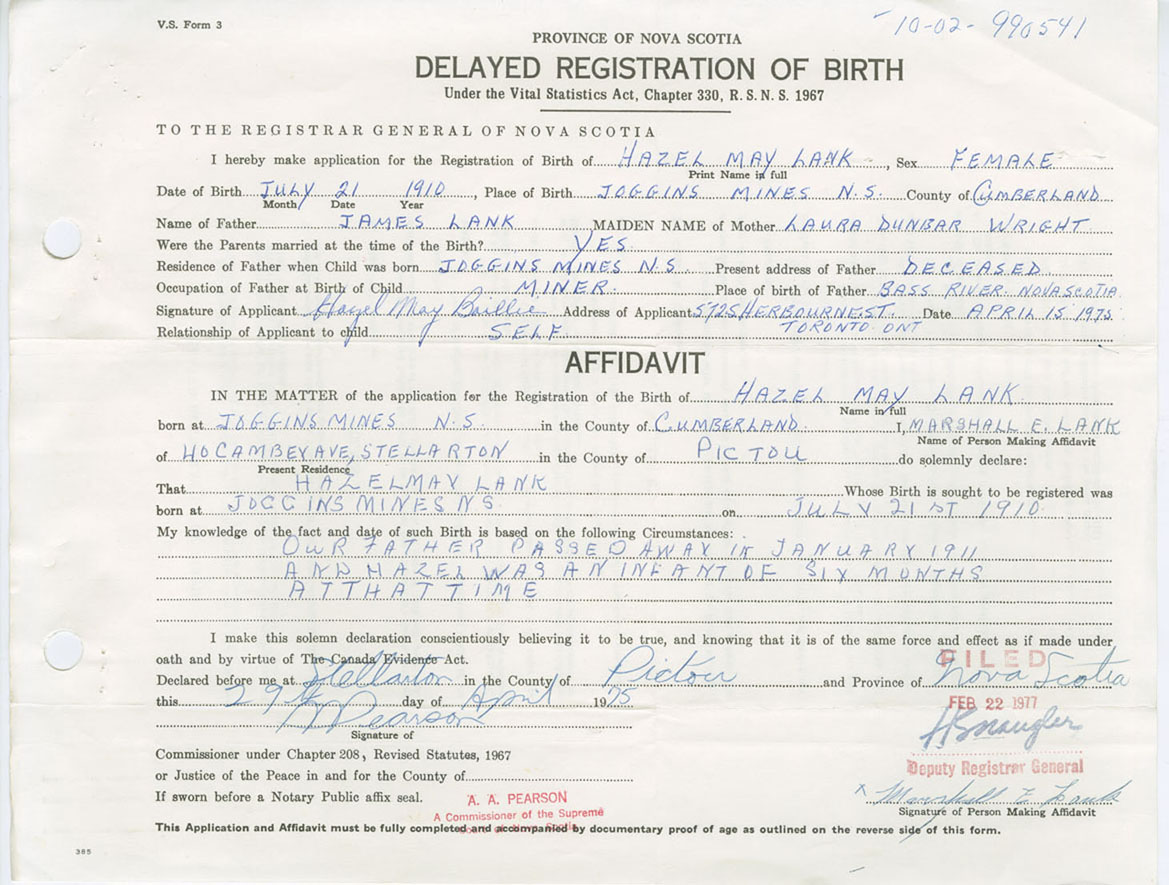 V.S. Form 3
10-02-990541
PROVINCE OF NOVA SCOTIA
DELAYED REGISTRATION OF BIRTH
Under the Vital Statistics Act, Chapter 330, R.S.N.S. 1967
TO THE REGISTRAR GENERAL OF NOVA SCOTIA
I hereby make application for the Registration of Birth of HAZEL MAY LANK, Sex FEMALE
Print Name in full
Date of Birth JULY 21 1910, Place of Birth JOGGINS MINES N.S. County of CUMBERLAND
Month Date Year
Name of Father JAMES LANK MAIDEN NAME of Mother LAURA DUNBAR WRIGHT
Were the Parents married at the time of the Birth? YES
Residence of Father when Child was born JOGGINS MINES N.S Present address of Father DECEASED
Occupation of Father at Birth of Child MINER Place of birth of Father BASS RIVER NOVA SCOTIA
Signature of Applicant Hazel May Baillie Address of Applicant 572 SHERBOURNE ST. Date APRIL 15 1975
Relationship of Applicant to child SELF TORONTO ONT
AFFIDAVIT
IN THE MATTER of the application for the Registration of the Birth of HAZEL MAY LANK
Name in full
born at JOGGINS MINES N.S. in the County of CUMBERLAND I, MARSHALL E. LANK
Name of Person Making Affidavit
of AVE, STELLARTON in the County of PICTOU do solemnly declare:
Present Residence
That HAZEL MAY LANK Whose Birth is sought to be registered was
born at JOGGINS MINES NS on JULY 21ST 1910
My knowledge of the fact and date of such Birth is based on the following Circumstances:
OUR FATHER PASSED AWAY IN JANUARY 1911
AND HAZEL WAS AN INFANT OF SIX MONTHS
AT THAT TIME
I make this solemn declaration conscientiously believing it to be true, and knowing that it is of the same force and effect as if made under
oath and by virtue of The Canada Evidence Act.
FILED
Declared before me at Stellarton in the County of Pictou and Province of Nova Scotia
this 29th day of April 1975
FEB 22 1977
A Pearson
Signature of
Commissioner under Chapter 208, Revised Statutes, 1967
Deputy Registrar General
or Justice of the Peace in and for the County of
If sworn before a Notary Public affix seal.
A. A. PEARSON
X Marshall E Lank
A Commissioner of the Supreme
Signature of Person Making Affidavit
This Application and Affidavit must be fully completed and accompanied by documentary proof of age as outlined on the reverse side of this form.
385